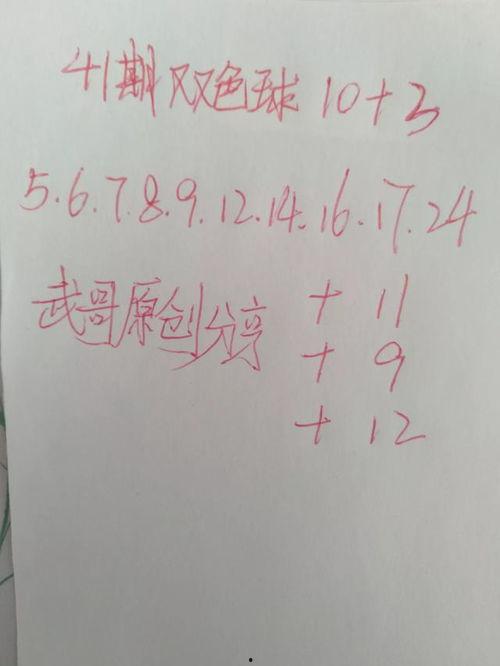 41期双色球 10+3
5.6.7.8.9.12.14.16.17.24
武哥原创分享 + 11
+ 9
+ 12